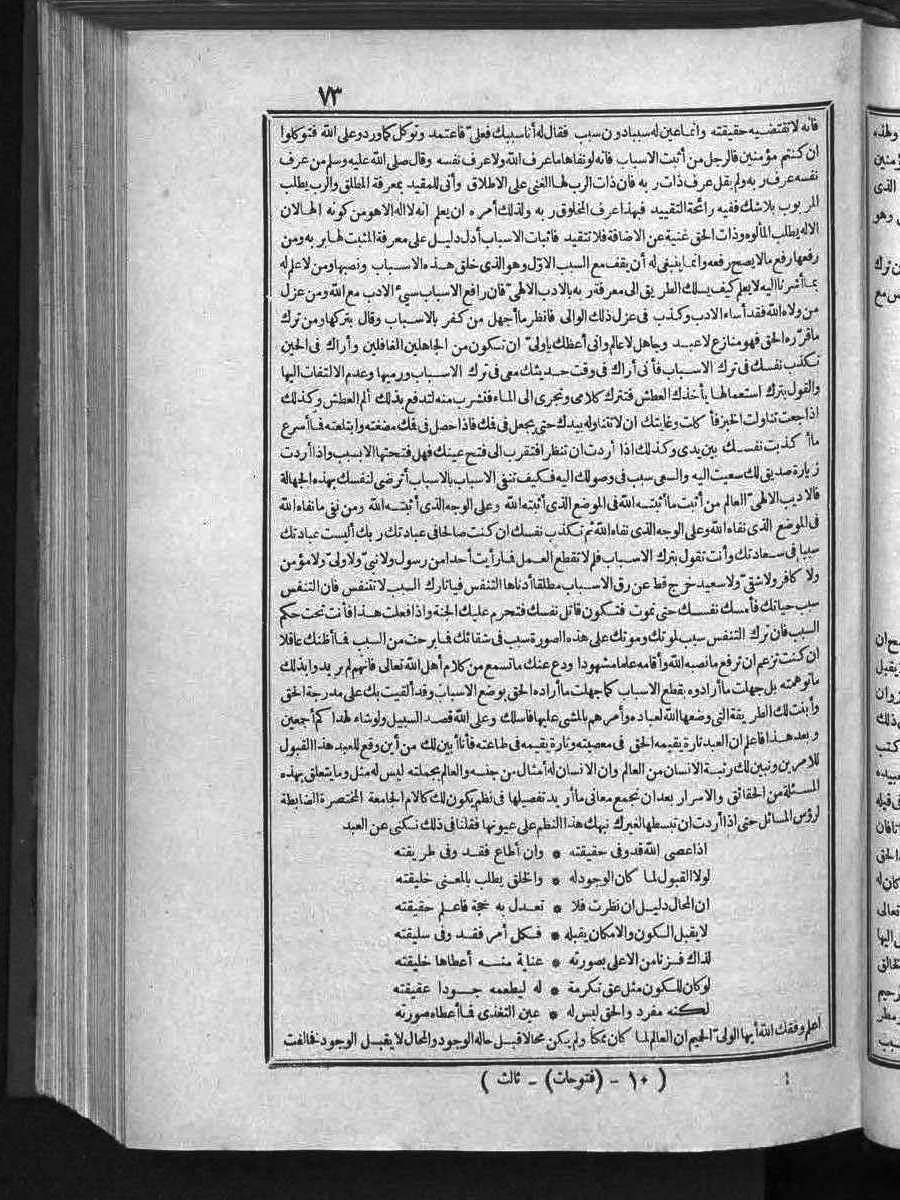 ٧٣
فانه لا تقتضيه حقيقته وانما عين له سببا دون سبب فقال له أنا سببك فعلى فاعتمد وتوكل كما ورد وعلى الله فتوكلوا
ان كنتم مؤمنين فالرجل من أثبت الاسباب فانه لو نفاها ما عرف الله ولا عرف نفسه وقال صلى الله عليه وسلم من عرف
نفسه عرف ربه ولم يقل عرف ذات ربه فان ذات الرب لها الغنى على الاطلاق وأنى للمقيد بمعرفة المطلق والرب يطلب
المربوب بلا شك ففيه رائحة التقييد فبهذا عرف المخلوق ربه ولذلك أمره ان يعلم انه لا اله الا هو من كونه الها لان
الاله يطلب المألوه وذات الحق غنية عن الاضافة فلا تتقيد فاثبات الاسباب أدل دليل على معرفة المثبت لها بربه ومن
رفعها رفع ما لا يصح رفعه وانما ينبغى له أن يقف مع السبب الاول وهو الذى خلق هذه الاسباب ونصبها ومن لا علم له
بما أشرنا اليه لا يعلم كيف يسلك الطريق الى معرفة ربه بالادب الالهى فان رافع الاسباب سيئ الادب مع الله ومن عزل
من ولاه الله فقد أساء الادب وكذب فى عزل ذلك الوالى فانظر ما أجهل من كفر بالاسباب وقال بتركها ومن ترك
ما قرره الحق فهو منازع لا عبد وجاهل لا عالم وانى أعظك يا ولى ان تكون من الجاهلين الغافلين وأراك فى الحين
تكذب نفسك فى ترك الاسباب فأنى أراك فى وقت حديثك معى فى ترك الاسباب ورميها وعدم الالتفات اليها
والقول بترك استعمالها يأخذك العطش فتترك كلامى وتجرى الى الماء فتشرب منه لتدفع بذلك ألم العطش وكذلك
اذا جعت تناولت الخبز فأكلت وغايتك ان لا تتناوله بيدك حتى يجعل فى فمك فاذا حصل فى فمك مضغته وابتلعته فما أسرع
ما أكذبت نفسك بين يدى وكذلك اذا أردت ان تنظر افتقرت الى فتح عينك فهل فتحتها الا بسبب واذا أردت
زيارة صديق لك سعيت اليه والسعى سبب فى وصولك اليه فكيف تنفى الاسباب بالاسباب أترضى لنفسك بهذه الجهالة
فالاديب الالهى العالم من أثبت ما أثبته الله فى الموضع الذى أثبته الله وعلى الوجه الذى أثبته الله ومن نفى ما نفاه الله
فى الموضع الذى نفاه الله وعلى الوجه الذى نفاه الله ثم تكذب نفسك ان كنت صالحا فى عبادتك ربك أليست عبادتك
سببا فى سعادتك وأنت تقول بترك الاسباب فلم لا تقطع العمل فما رأيت أحدا من رسول ولا نبى ولا ولى ولا مؤمن
ولا كافر ولا شقى ولا سعيد خرج قط عن رق الاسباب مطلقا أدناها التنفس فيا تارك السبب لا تتنفس فان التنفس
سبب حياتك فأمسك نفسك حتى تموت فتكون قاتل نفسك فتحرم عليك الجنة واذا فعلت هذا فأنت تحت حكم
السبب فان ترك التنفس سبب لموتك وموتك على هذه الصورة سبب فى شقائك فما برحت من السبب فما أظنك عاقلا
ان كنت تزعم ان ترفع ما نصبه الله وأقامه علما مشهودا ودع عنك ما تسمع من كلام أهل الله تعالى فانهم لم يريدوا بذلك
ما توهمته بل جهلت ما أرادوه بقطع الاسباب كما جهلت ما أراده الحق بوضع الاسباب وقد ألقيت بك على مدرجة الحق
وأبنت لك الطريقة التى وضعها الله لعباده وأمرهم بالمشى عليها فاسلك وعلى الله قصد السبيل ولو شاء لهداكم أجمعين
وبعد هذا فاعلم ان العبد تارة يقيمه الحق فى معصيته وتارة يقيمه فى طاعته فأنا أبين لك من أين وقع للعبد هذا القبول
للامرين ونبين لك رتبة الانسان من العالم وان الانسان له أمثال من جنسه والعالم بجملته ليس له مثل وما يتعلق بهذه
المسئلة من الحقائق والاسرار بعد ان نجمع معانى ما أريد تفصيلها فى نظم يكون لك كالام الجامعة المختصرة الضابطة
لرؤس المسائل حتى اذا أردت ان تبسطها لغيرك نبهك هذا النظم على عيونها فقلنا فى ذلك نكنى عن العبد
اذا عصى الله قد وفى حقيقته * وان أطاع فقد وفى طريقته
لولا القبول لما كان الوجود له * والخلق يطلب بالمعنى خليقته
ان المحال دليل ان نظرت فلا * تعدل به حجة فاعلم حقيقته
لا يقبل الكون والامكان يقبله * فكل أمر فقد وفى سليقته
لذاك فزنا من الاعلى بصورته * عناية منه أعطاها خليقته
لو كان للكون مثل عق تكرمة * له ليطعمه جودا عقيقته
لكنه مفرد والحق ليس له * عين التغذى فما أعطاه صورته
اعلم وفقك الله أيها الولى الحميم ان العالم لما كان ممكنا ولم يكن محالا قبل حالة الوجود والمحال لا يقبل الوجود فخالفت
( ١٠ - (فتوحات) - ثالث )